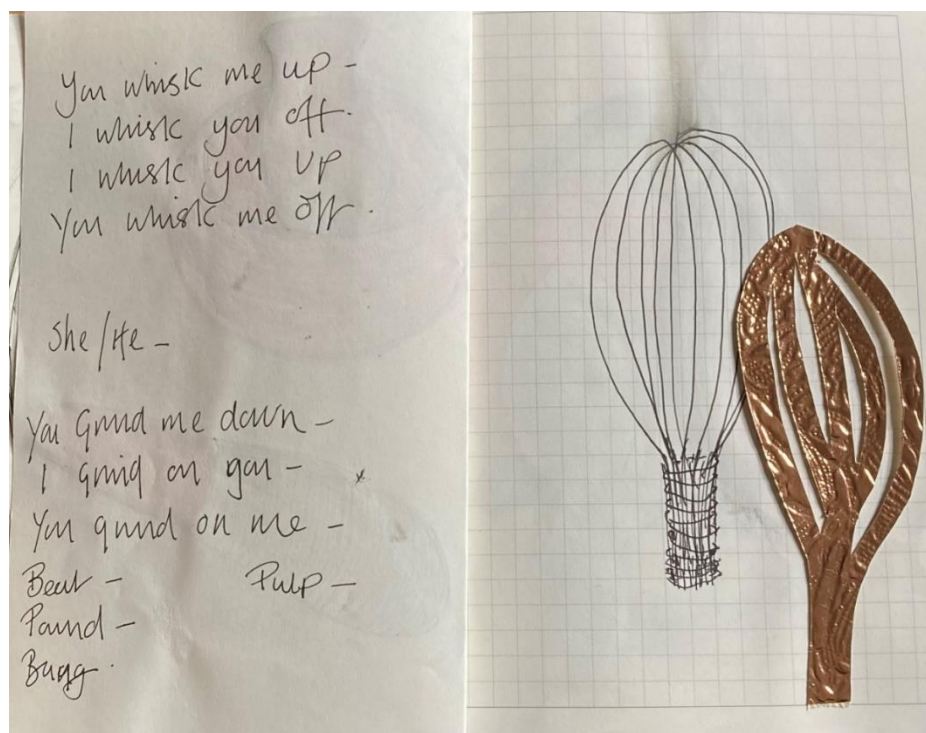 You whisk me up -
I whisk you off.
I whisk you up
You whisk me off.
She/He -
You Grind me down -
I grind on you -
You grind on me -
Beat - Pulp -
Pound -